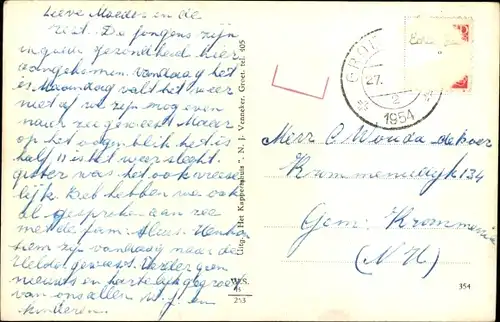 Lieve Moeder en de
rest. De jongens zijn
in goede gezondheid hier
aangekomen. Vandaag het
is Maandag valt het weer
niet af we zijn nog even
naar zee geweest Maar
op het oogenblik het is
half 11 is het weer slecht.
gister was het ook
lijk. Heb hebben we ook
al gesproken aan zee
met de fam.
ziem zijn vandaag naar de
Helder geweest. Verder geen
nieuws en hartelijk gegroet
van ons allen W. J. en
kinderen.
Uitg. „Het Kappershuis", N. J. Venneker, Groet, tel. 405
W.S.
253
GRO
27.
2
1954
Mevr C Wouda de boer
Krommeniedijk 134
Gem: Krommenie
(N H)
354